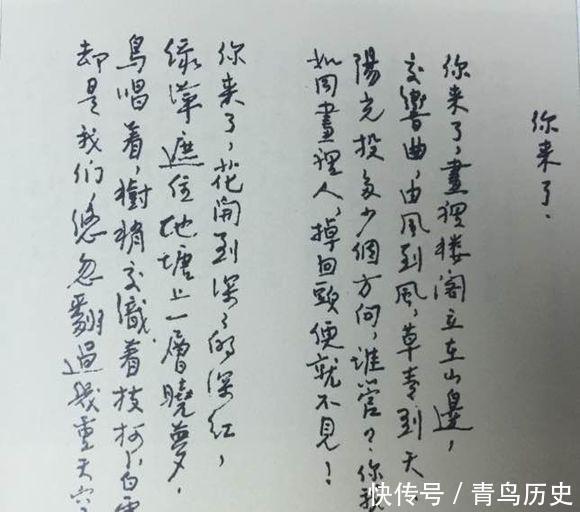 你来了.
你来了,畫裡楼阁立在山邊,
交響曲,由風到風,草青到天
陽光投多少個方向,谁管?你我
如同畫裡人,掉回頭便就不見!
你来了,花開到深深的深红,
绿萍遮住池塘上一層曉夢,
鳥唱着,樹稍交織着枝柯,白雲
却是我们悠忽翻過幾重天空
快传号/青鸟历史